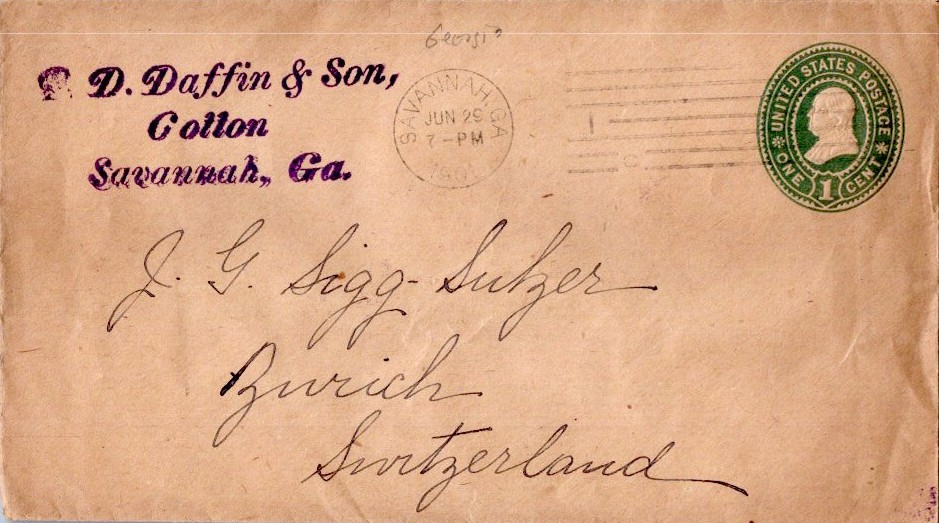 Georgia
D. Daffin & Son,
Cotton
Savannah, Ga.
SAVANNAH, GA
JUN 29
7-PM
UNITED STATES POSTAGE
ONE 1 CENT
J. G. Sigg-Sulzer
Zurich
Switzerland